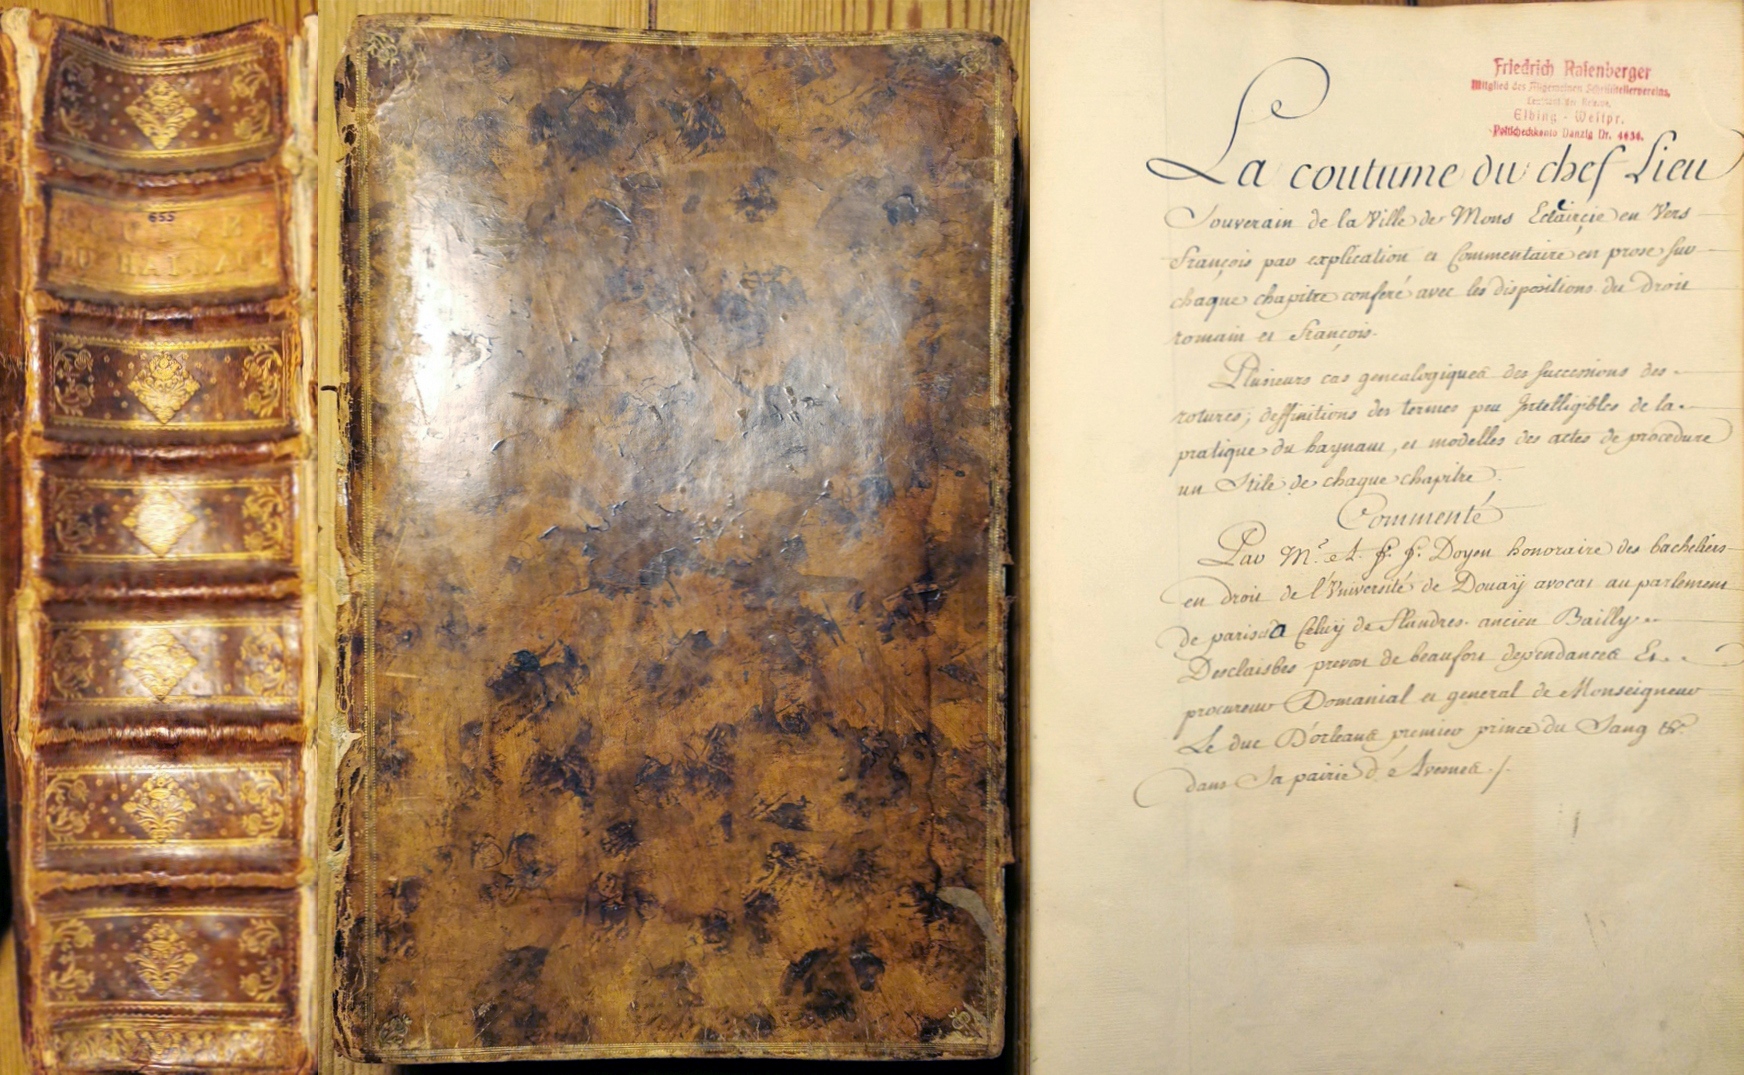 655
DU HAINAUT
Friedrich Rasenberger
Mitglied des Allgemeinen Schriftstellervereins,
Elbing - Westpr.
Postscheckkonto Danzig Nr. 4434.
La coutume du chef Lieu
Souverain de la Ville de Mons Eclaircie en Vers
François par explication et Commentaire en prose sur
chaque chapitre conferé avec les dispositions du droit
romain et François.
Plusieurs cas genealogiques des successions des
rotures, deffinitions des termes peu Intelligibles de la
pratique du haynaut, et modelles des actes de procedure
un Stile de chaque chapitre.
Commenté
Par Mr. et A. Doyen honoraire des bacheliers
en droit de l'Université de Douaÿ avocat au parlement
de paris à Celuÿ de Flandres. ancien Bailly
Desclaisbes prevot de beaufort dependances Et
procureur Domanial et general de Monseigneur
Le duc D'orleans premier prince du Sang &c.
dans Sa pairie d'Avesnes ./.